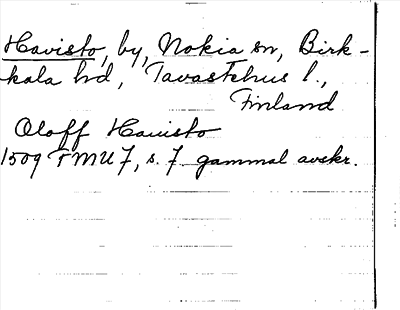 Havisto, by, Nokia sn, Birk-
kala hd, Tavastehus l.,
Finland
Oloff Hauisto
1509 FMU 7, s. 7 gammal avskr.